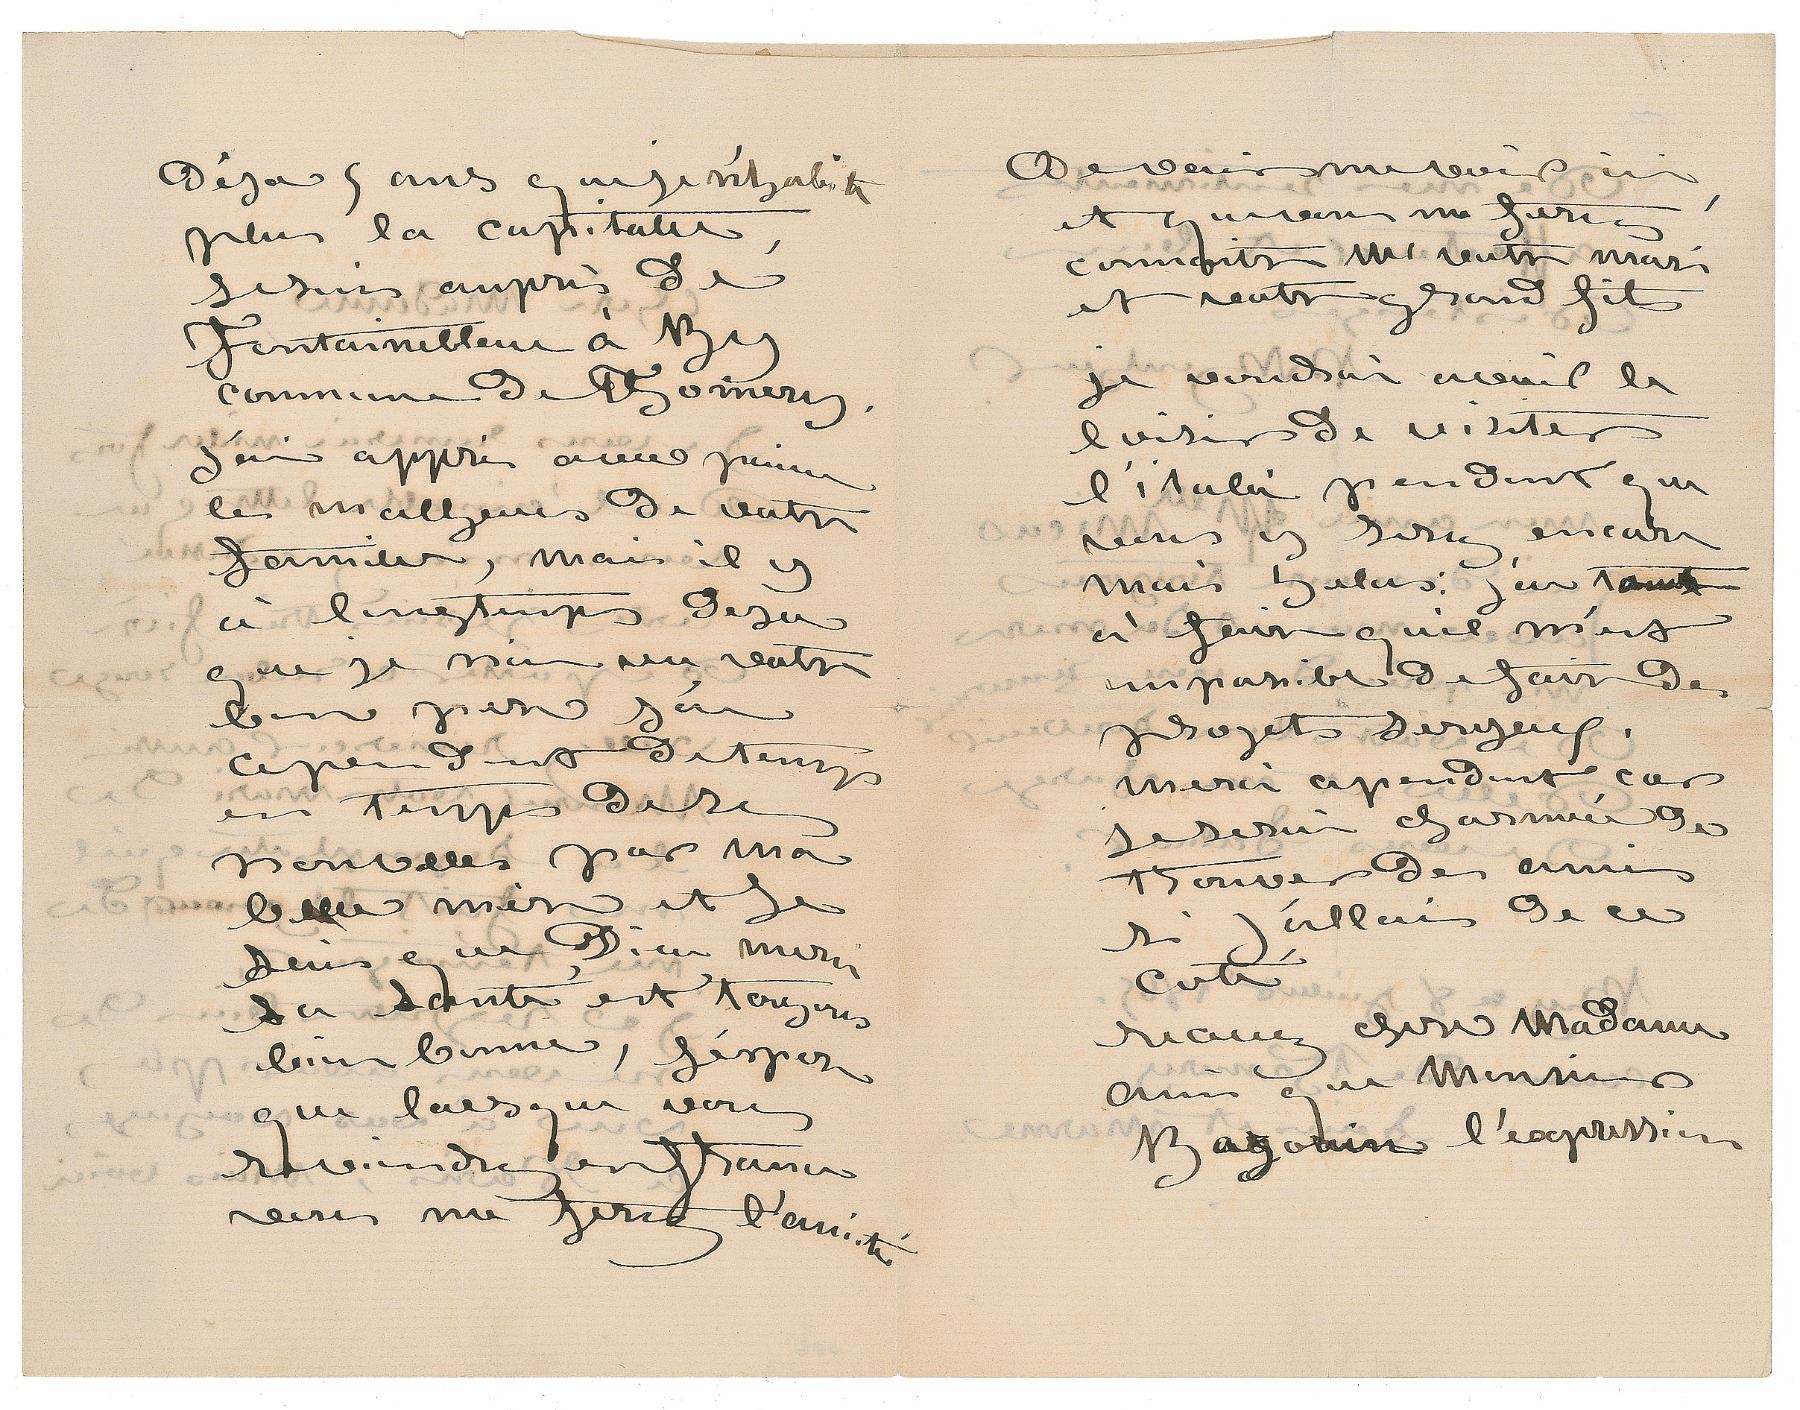 Déja 5 ans que je n'habite
plus la capitale,
je suis auprès de
Fontainebleau à By
commune de Thomery.
j'ai appris avec peine
les malheurs de votre
famille, mais il y
à longtemps deja
que je n'ai vu votre
bon père j'ai
cependant de temps
en temps de ses
nouvelles par ma
belle mère et je
sais que Dieu merci
sa santé est toujours
bien bonne, j'éspère
que lorsque vous
reviendrez en France
vous me ferez l'amitié
De venir me voir ici,
et que vous me ferez
connaitre Mr votre mari
et votre grand fils
je voudrai avoir le
loisir de visiter
l'italie pendant que
vous y serez encore
mais hélas: j'ai tant
à faire qu'il m'est
impossible de faire des
projets serieux.
merci cependant car
je serai charmée de
trouver des amis
si j'allais de ce
coté
recevez chère Madame
ainsi que Monsieur
l'expression